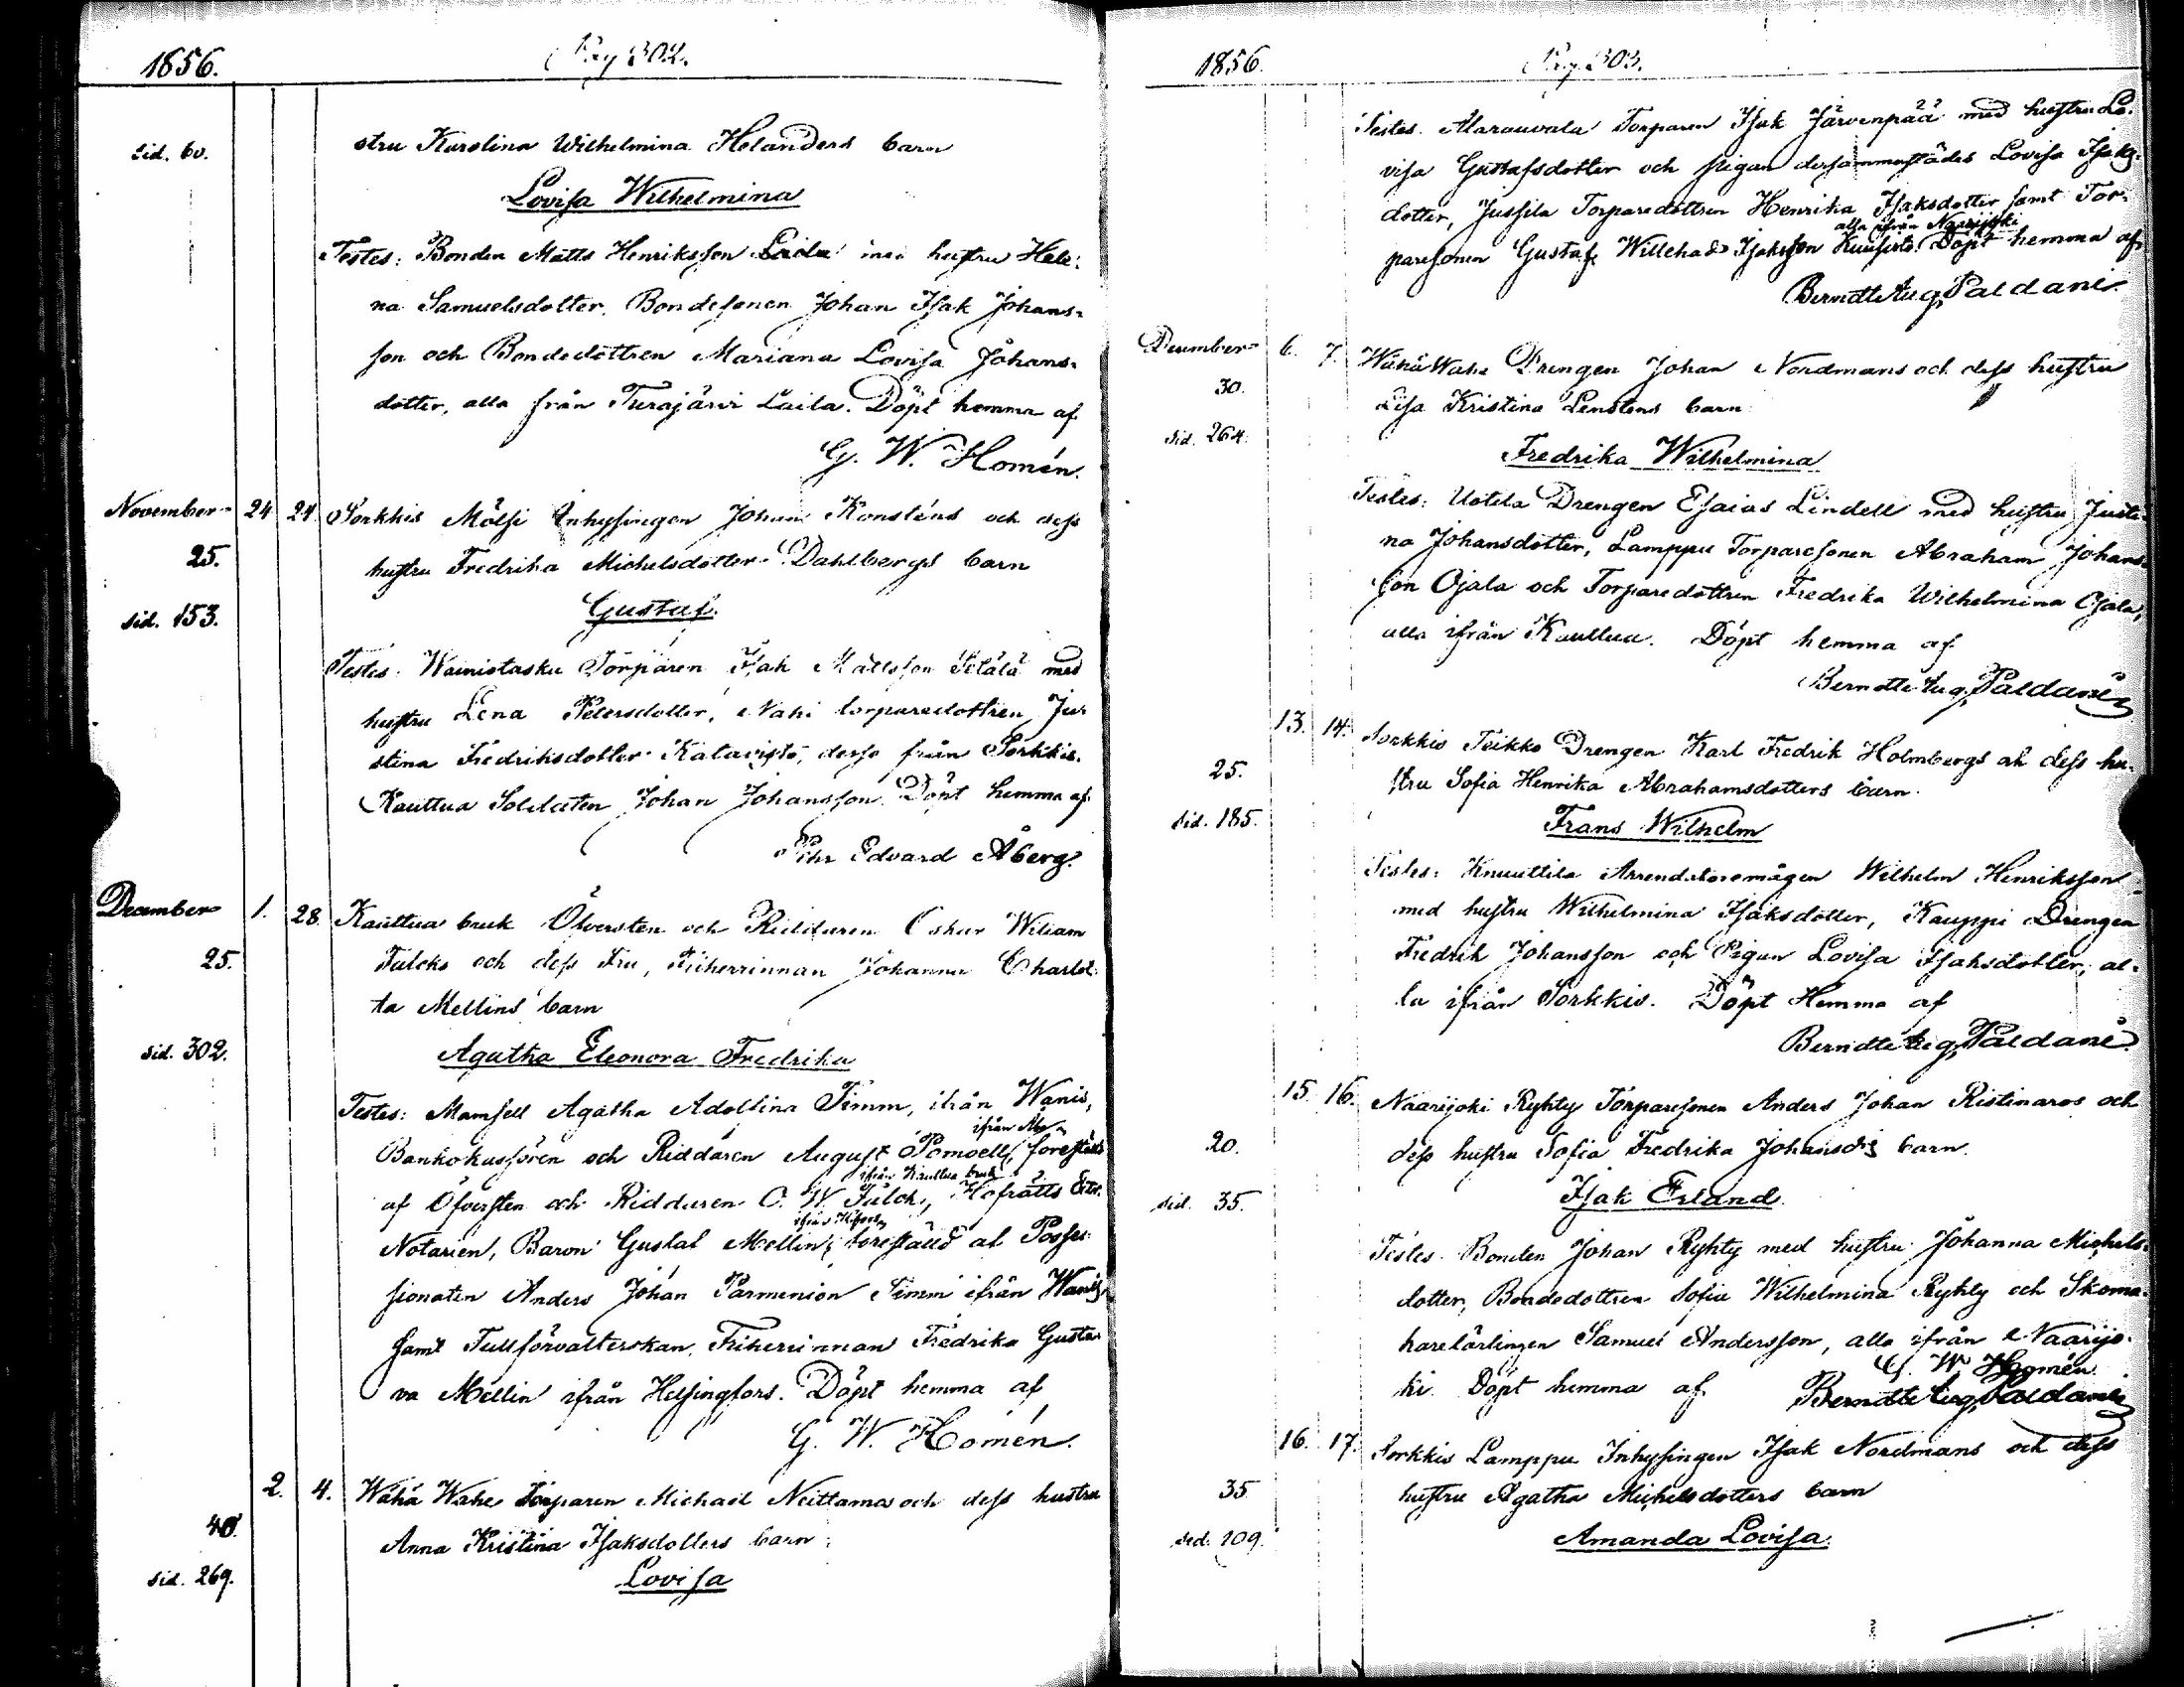 1856. Pag 302.
Sid. 60. stru Karolina Wilhelmina Helanders barn
Lovisa Wilhelmina
Testes: Bonden Matts Henriksson Laila med hustru Hele-
na Samuelsdotter, Bondesonen Johan Isak Johans-
son och Bondedottren Mariana Lovisa Johans-
dotter, alla från Turajärvi Laila. Döpt hemma af
G. W. Homén.
November 24 24 Sorkkis Mölsi Inhysingen Johan Konsténs och dess
25. hustru Fredrika Michelsdotter Dahlbergs barn
Gustaf.
Sid. 153.
Testes: Wainiotasku Torparen Isak Mattsson Setälä med
hustru Lena Petersdotter, Nahi torparedottren Ju-
stina Fredriksdotter Katavisto, desse från Sorkkis.
Kauttua Soldaten Johan Johansson. Döpt hemma af
Pehr Edvard Åberg.
December 1. 28. Kauttua bruk Öfversten och Riddaren Oskar Wiliam
25. Fulcks och dess Fru, Friherrinnan Johanna Charlot-
ta Mellins barn
Sid. 302. Agatha Eleonora Fredrika
Testes: Mamsell Agatha Adolfina Timm, ifrån Wanis,
ifrån Åbo
Bankokassören och Riddaren August Pomoell, förestädd
ifrån Kauttua bruk
af Öfversten och Riddaren O. W. Fulck, Hofrätts Extr.
Notarien, Baron Gustaf Mellin, föreställd af Posses-
sionaten Anders Johan Parmenion Timm ifrån Wanis
samt Tullförvalterskan, Friherrinnan Fredrika Gusta-
va Mellin ifrån Helsingfors. Döpt hemma af
G. W. Homén.
2. 4. Wähä Wahe Torparen Michael Neittamas och dess hustru
40. Anna Kristina Isaksdotters barn
Sid. 269. Lovisa
1856. Pag. 303.
Testes. Torparen Isak Järvenpää med hustru Lo-
visa Gustafsdotter och pigan dersammastädes Lovisa Isaks-
dotter, Jussila Torparedottren Henrika Isaksdotter samt Tor-
alla ifrån Naarijoki
paresonen Gustaf Willehad Isaksson Kuusisto. Döpt hemma af
Berndt Aug. Paldani
December 6. 7. Wähä Wahe Drengen Johan Nordmans och dess hustru
30. Lisa Kristina Lensténs barn
Sid. 264. Fredrika Wilhelmina
Testes: Uotila Drengen Esaias Lindell med hustru Justi-
na Johansdotter, Lamppu Torparesonen Abraham Johans-
son Ojala och Torparedottren Fredrika Wilhelmina Ojala,
alla ifrån Kauttua. Döpt hemma af
Berndt Aug. Paldani
13. 14. Sorkkis Teikko Drengen Karl Fredrik Holmbergs och dess hu-
25. stru Sofia Henrika Abrahamsdotters barn.
Sid. 185. Frans Wilhelm
Testes: Knuuttila Arrendatoremågen Wilhelm Henriksson
med hustru Wilhelmina Isaksdotter, Kauppi Drengen
Fredrik Johansson och Pigan Lovisa Isaksdotter, al-
la ifrån Sorkkis. Döpt Hemma af
Berndt Aug. Paldani
15. 16. Naarijoki Ryhty Torparesonen Anders Johan Ristinaros och
20. dess hustru Sofia Fredrika Johansdr barn.
Sid. 35. Isak Erland
Testes. Bonden Johan Ryhty med hustru Johanna Michels-
dotter, Bondedottren Sofia Wilhelmina Ryhty och Skoma-
harelärlingen Samuel Andersson, alla ifrån Naarijo-
G. W. Homén
ki. Döpt hemma af Berndt Aug. Paldani
16. 17. Sorkkis Lamppu Inhysingen Isak Nordmans och dess
35 hustru Agatha Michelsdotters barn
Sid. 109. Amanda Lovisa.